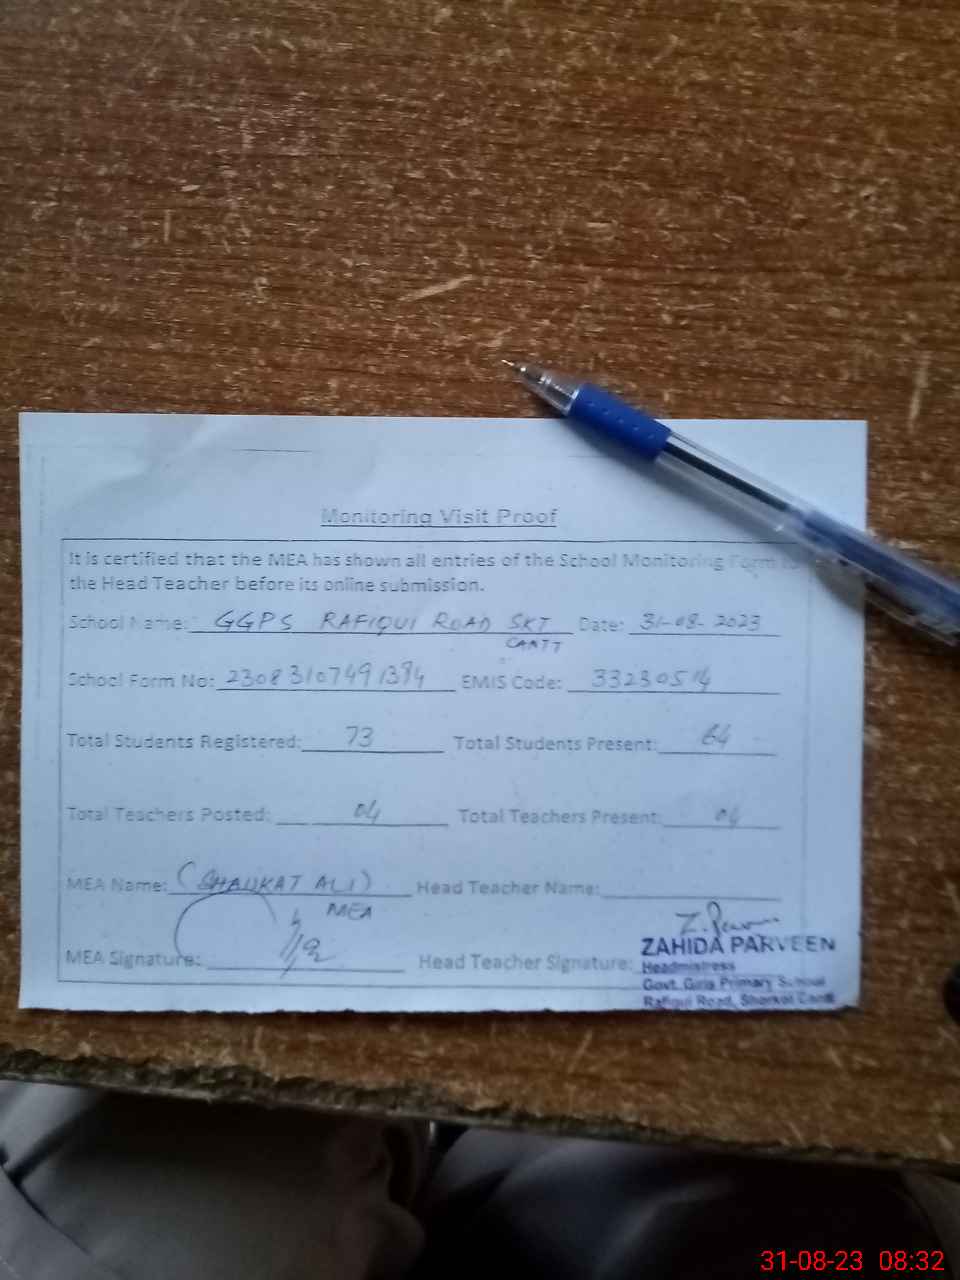 Monitoring Visit Proof
It is certified that the MEA has shown all entries of the School Monitoring Form to
the Head Teacher before its online submission.
School Name: GGPS RAFIQUI ROAD SKT Date: 31-08-2023
CANTT
School Form No: 23083107491384 EMIS Code: 33230514
Total Students Registered: 73 Total Students Present: 64
Total Teachers Posted: 04 Total Teachers Present: 04
MEA Name: (SHAUKAT ALI) Head Teacher Name:
MEA
Z. Parveen
MEA Signature: Head Teacher Signature: ZAHIDA PARVEEN
Headmistress
Govt. Girls Primary School
Rafiqui Road, Shorkot Cantt
31-08-23 08:32